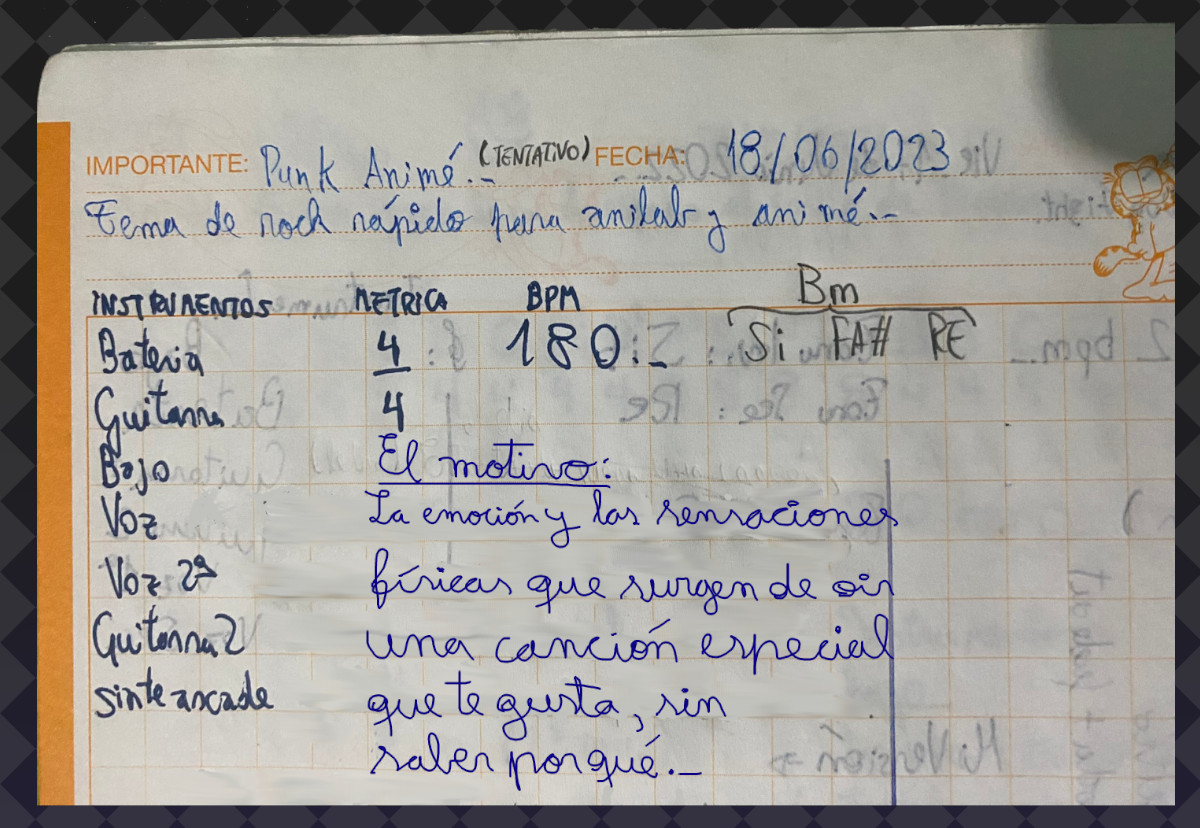 IMPORTANTE: Punk Animé.- (TENTATIVO) FECHA: 18/06/2023
Tema de rock rápido para anilab y animé.-
INSTRUMENTOS METRICA BPM Bm
Bateria 4 180.- Si FA# RE
Guitarra 4
Bajo El motivo:
Voz La emoción y las sensaciones
Voz 2ª físicas que surgen de oir
Guitarra 2 una canción especial
sinte arcade que te gusta, sin
saber porqué.-